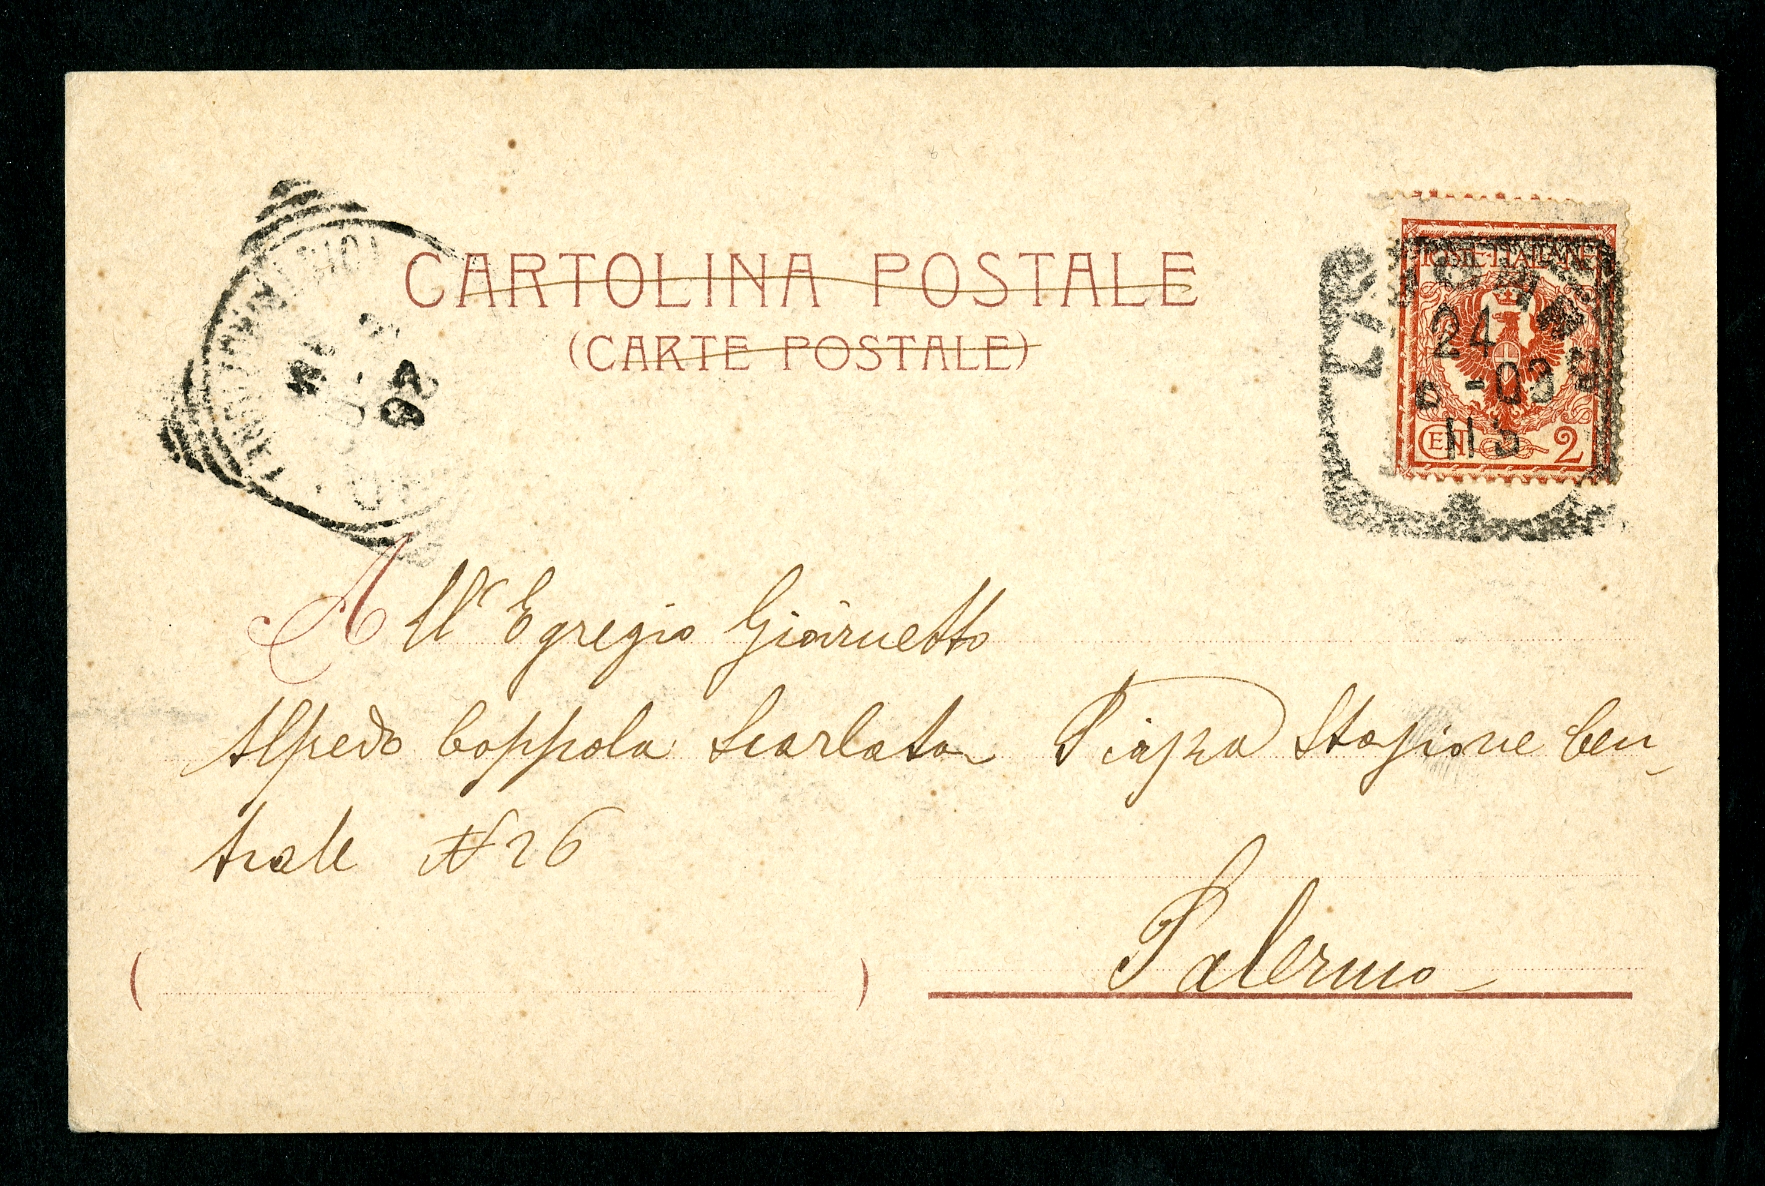 CARTOLINA POSTALE
(CARTE POSTALE)
POSTE ITALIANE
24
6 - 03
11 S
CENT 2
All' Egregio Giovinetto
Alfredo Coppola Scarlata Piazza Stazione Cen-
trale N 26
Palermo